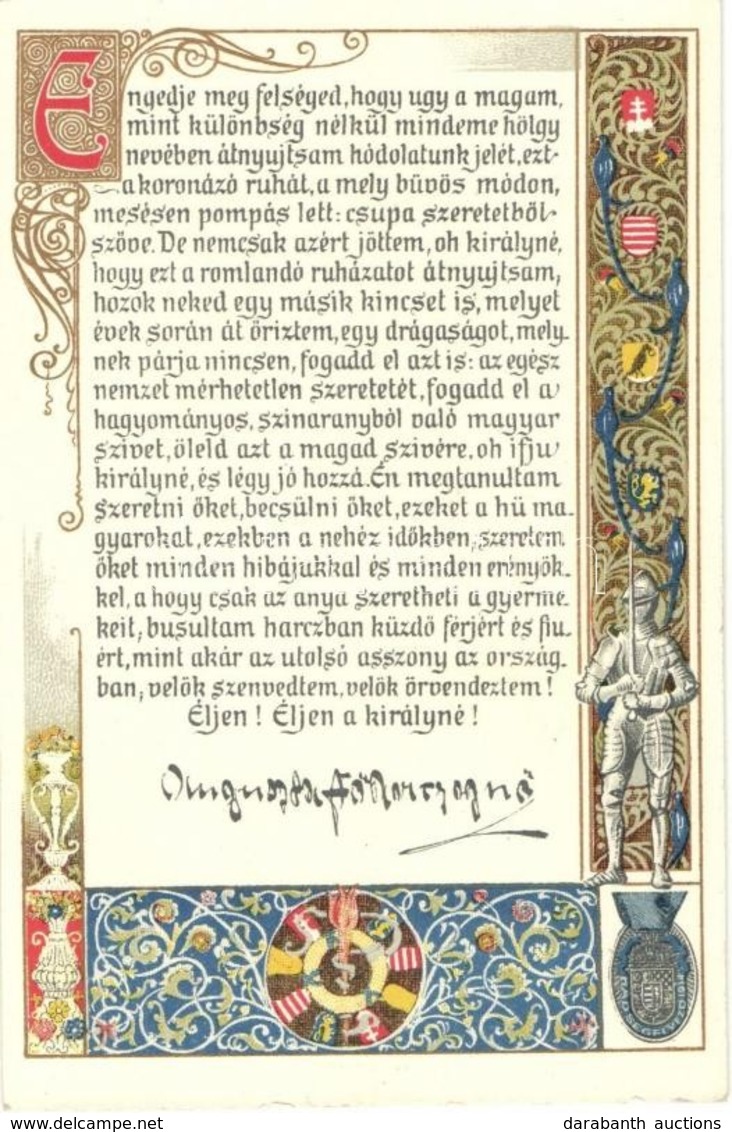 Engedje meg felséged, hogy ugy a magam,
mint különbség nélkül mindeme hölgy
nevében átnyujtsam hódolatunk jelét, ezt
a koronázó ruhát, a mely büvös módon,
mesésen pompás lett: csupa szeretetből
szőve. De nemcsak azért jöttem, oh királyné,
hogy ezt a romlandó ruházatot átnyujtsam,
hozok neked egy másik kincset is, melyet
évek során át őriztem, egy drágaságot, mely-
nek párja nincsen, fogadd el azt is: az egész
nemzet mérhetetlen szeretetét, fogadd el a
hagyományos, szinaranyból való magyar
szivet, öleld azt a magad szivére, oh ifju
királyné, és légy jó hozzá. Én megtanultam
szeretni őket, becsülni őket, ezeket a hü ma-
gyarokat, ezekben a nehéz időkben, szeretem
őket minden hibájukkal és minden erényök-
kel, a hogy csak az anya szeretheti a gyerme-
keit; busultam harczban küzdő férjért és fiu-
ért, mint akár az utolsó asszony az ország-
ban; velök szenvedtem, velök örvendeztem!
Éljen! Éljen a királyné!
Auguszta főherczegnő
darabanth auctions